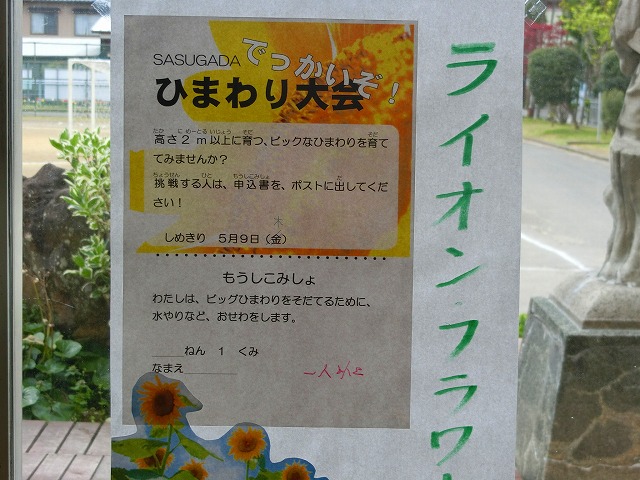 SASUGADA
でっかいぞ!
ひまわり大会
高さ2m以上に育つ、ビックなひまわりを育て
てみませんか?
挑戦する人は、申込書を、ポストに出してくだ
さい!
木
しめきり 5月9日(金)
もうしこみしょ
わたしは、ビッグひまわりをそだてるために、
水やりなど、おせわをします。
ねん 1 くみ
なまえ
ライオン・フラワー